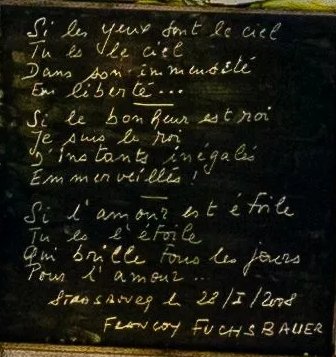 Si les yeux sont le ciel
Tu es le ciel
Dans son immensité
En liberté...
Si le bonheur est roi
Je suis le roi
D'instants inégalés
Emmerveillés !
Si l'amour est étoile
Tu es l'étoile
Qui brille tous les jours
Pour l'amour...
Strasbourg le 28/I/2008
FUCHSBAUER